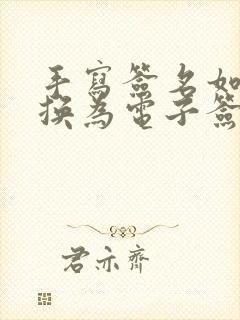 手寫簽名如
換為電子簽
君亦齊